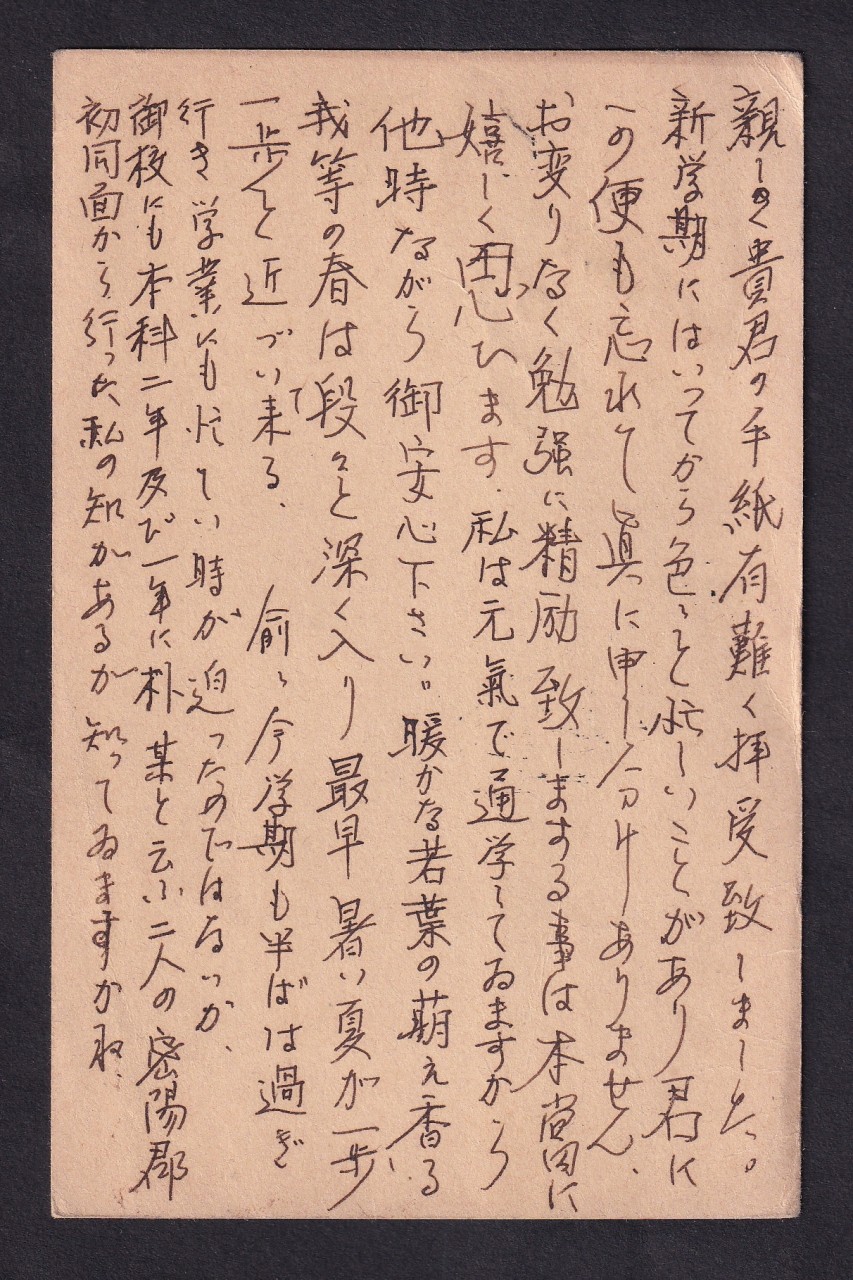 親しく貴君の手紙有難く拝受致しました。
新学期にはいってから色々と忙しいことがあり君に
への便も忘れて眞に申し分けありません、
お変りなく勉强に精励致しまする事は本當に
嬉しく思ひます、私は元氣で通学してゐますから
他時ながら御安心下さい。暖かな若葉の萌え香る
我等の春は段々と深く入り最早暑い夏が一歩
一歩と近づいて来る、 愈々今学期も半ばは過ぎ
行き学業にも忙しい時が迫ったのではないか、
御校にも本科二年及び一年に朴某と云ふ二人の密陽郡
初同面から行った私の知があるが知ってゐますかね、